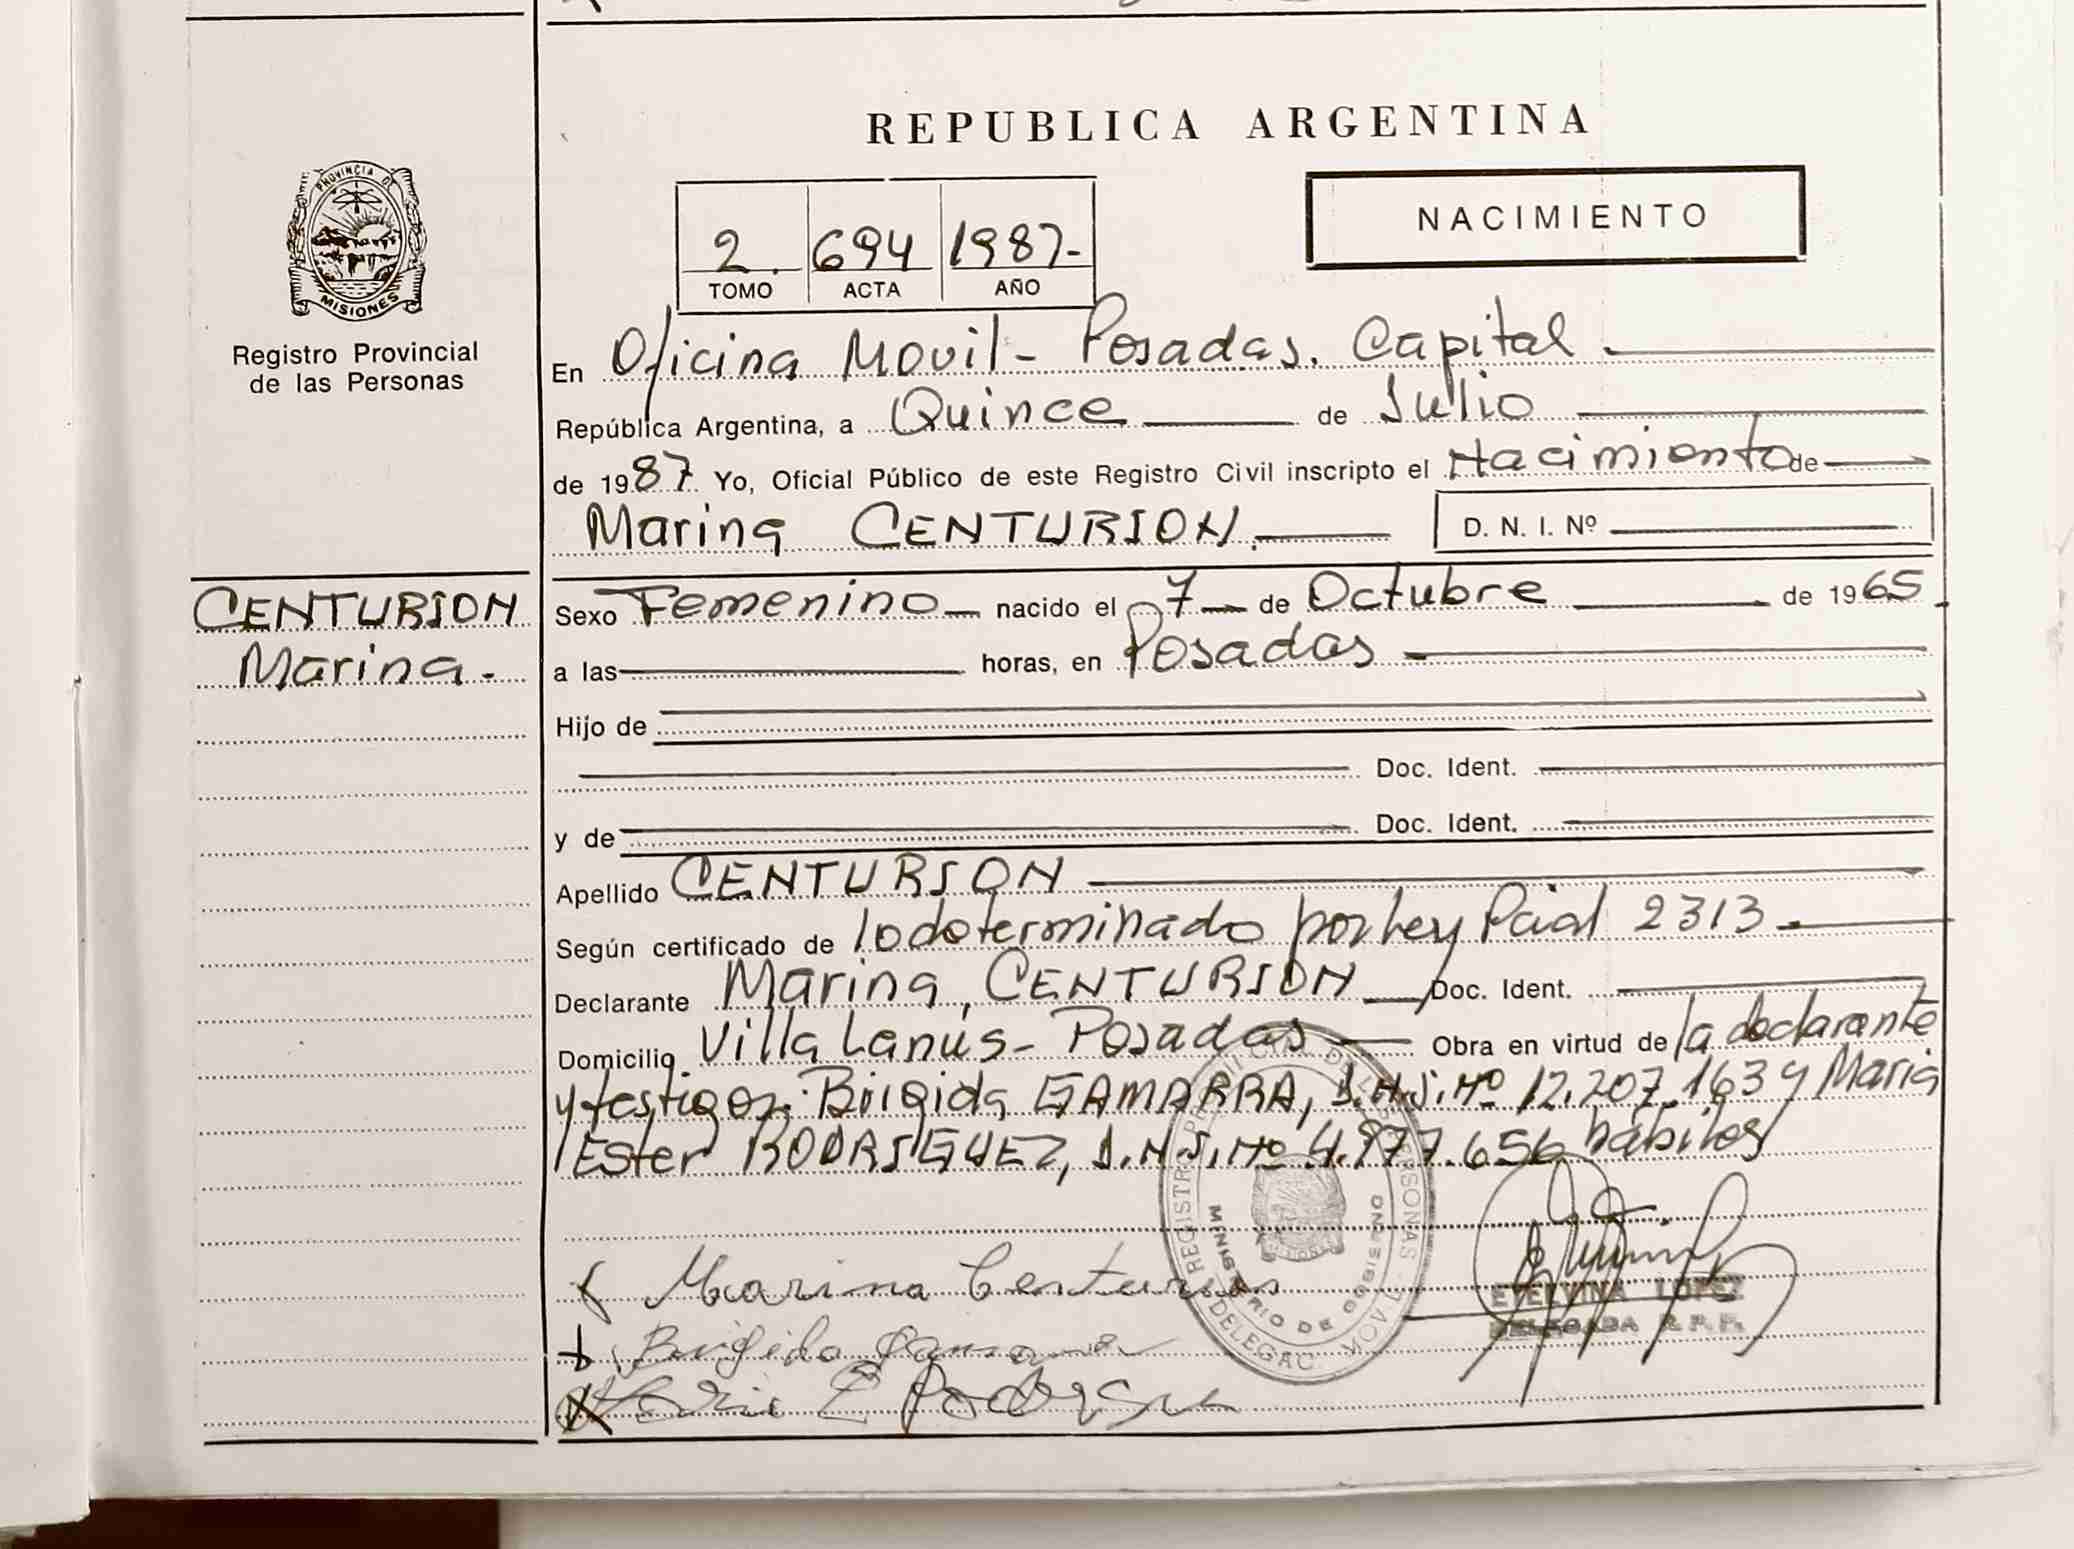 REPUBLICA ARGENTINA
PROVINCIA DE
MISIONES
Registro Provincial
de las Personas
NACIMIENTO
2 694 1987-
TOMO ACTA AÑO
En Oficina Movil - Posadas. Capital
República Argentina, a Quince de Julio
de 1987 Yo, Oficial Público de este Registro Civil inscripto el Nacimiento de
Marina CENTURION. D. N. I. Nº
CENTURION
Marina.-
Sexo Femenino nacido el 7 de Octubre de 1965
a las horas, en Posadas
Hijo de
Doc. Ident.
y de Doc. Ident.
Apellido CENTURION
Según certificado de lo determinado por Ley Pcial 2313.
Declarante Marina, CENTURION Doc. Ident.
Domicilio Villa Lanús - Posadas Obra en virtud de la declarante
y testigos: Brigida GAMARRA, D.N.I. Nº 12.207.163 y Maria
Ester RODRIGUEZ, D.N.I. Nº 4.977.656 hábiles
Marina Centurion
Brigida Gamarra
Maria E Rodrigue
MINISTERIO DE GOBIERNO
ETELVINA LOPEZ
DELEGADA R. P. P.